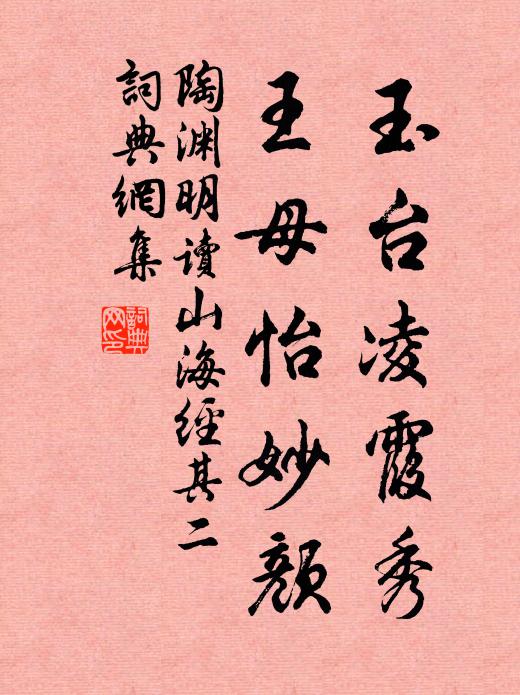 玉台凌霞秀
王母怡妙顔
陶渊明讀山海經其二
詞典網集
詞典网印